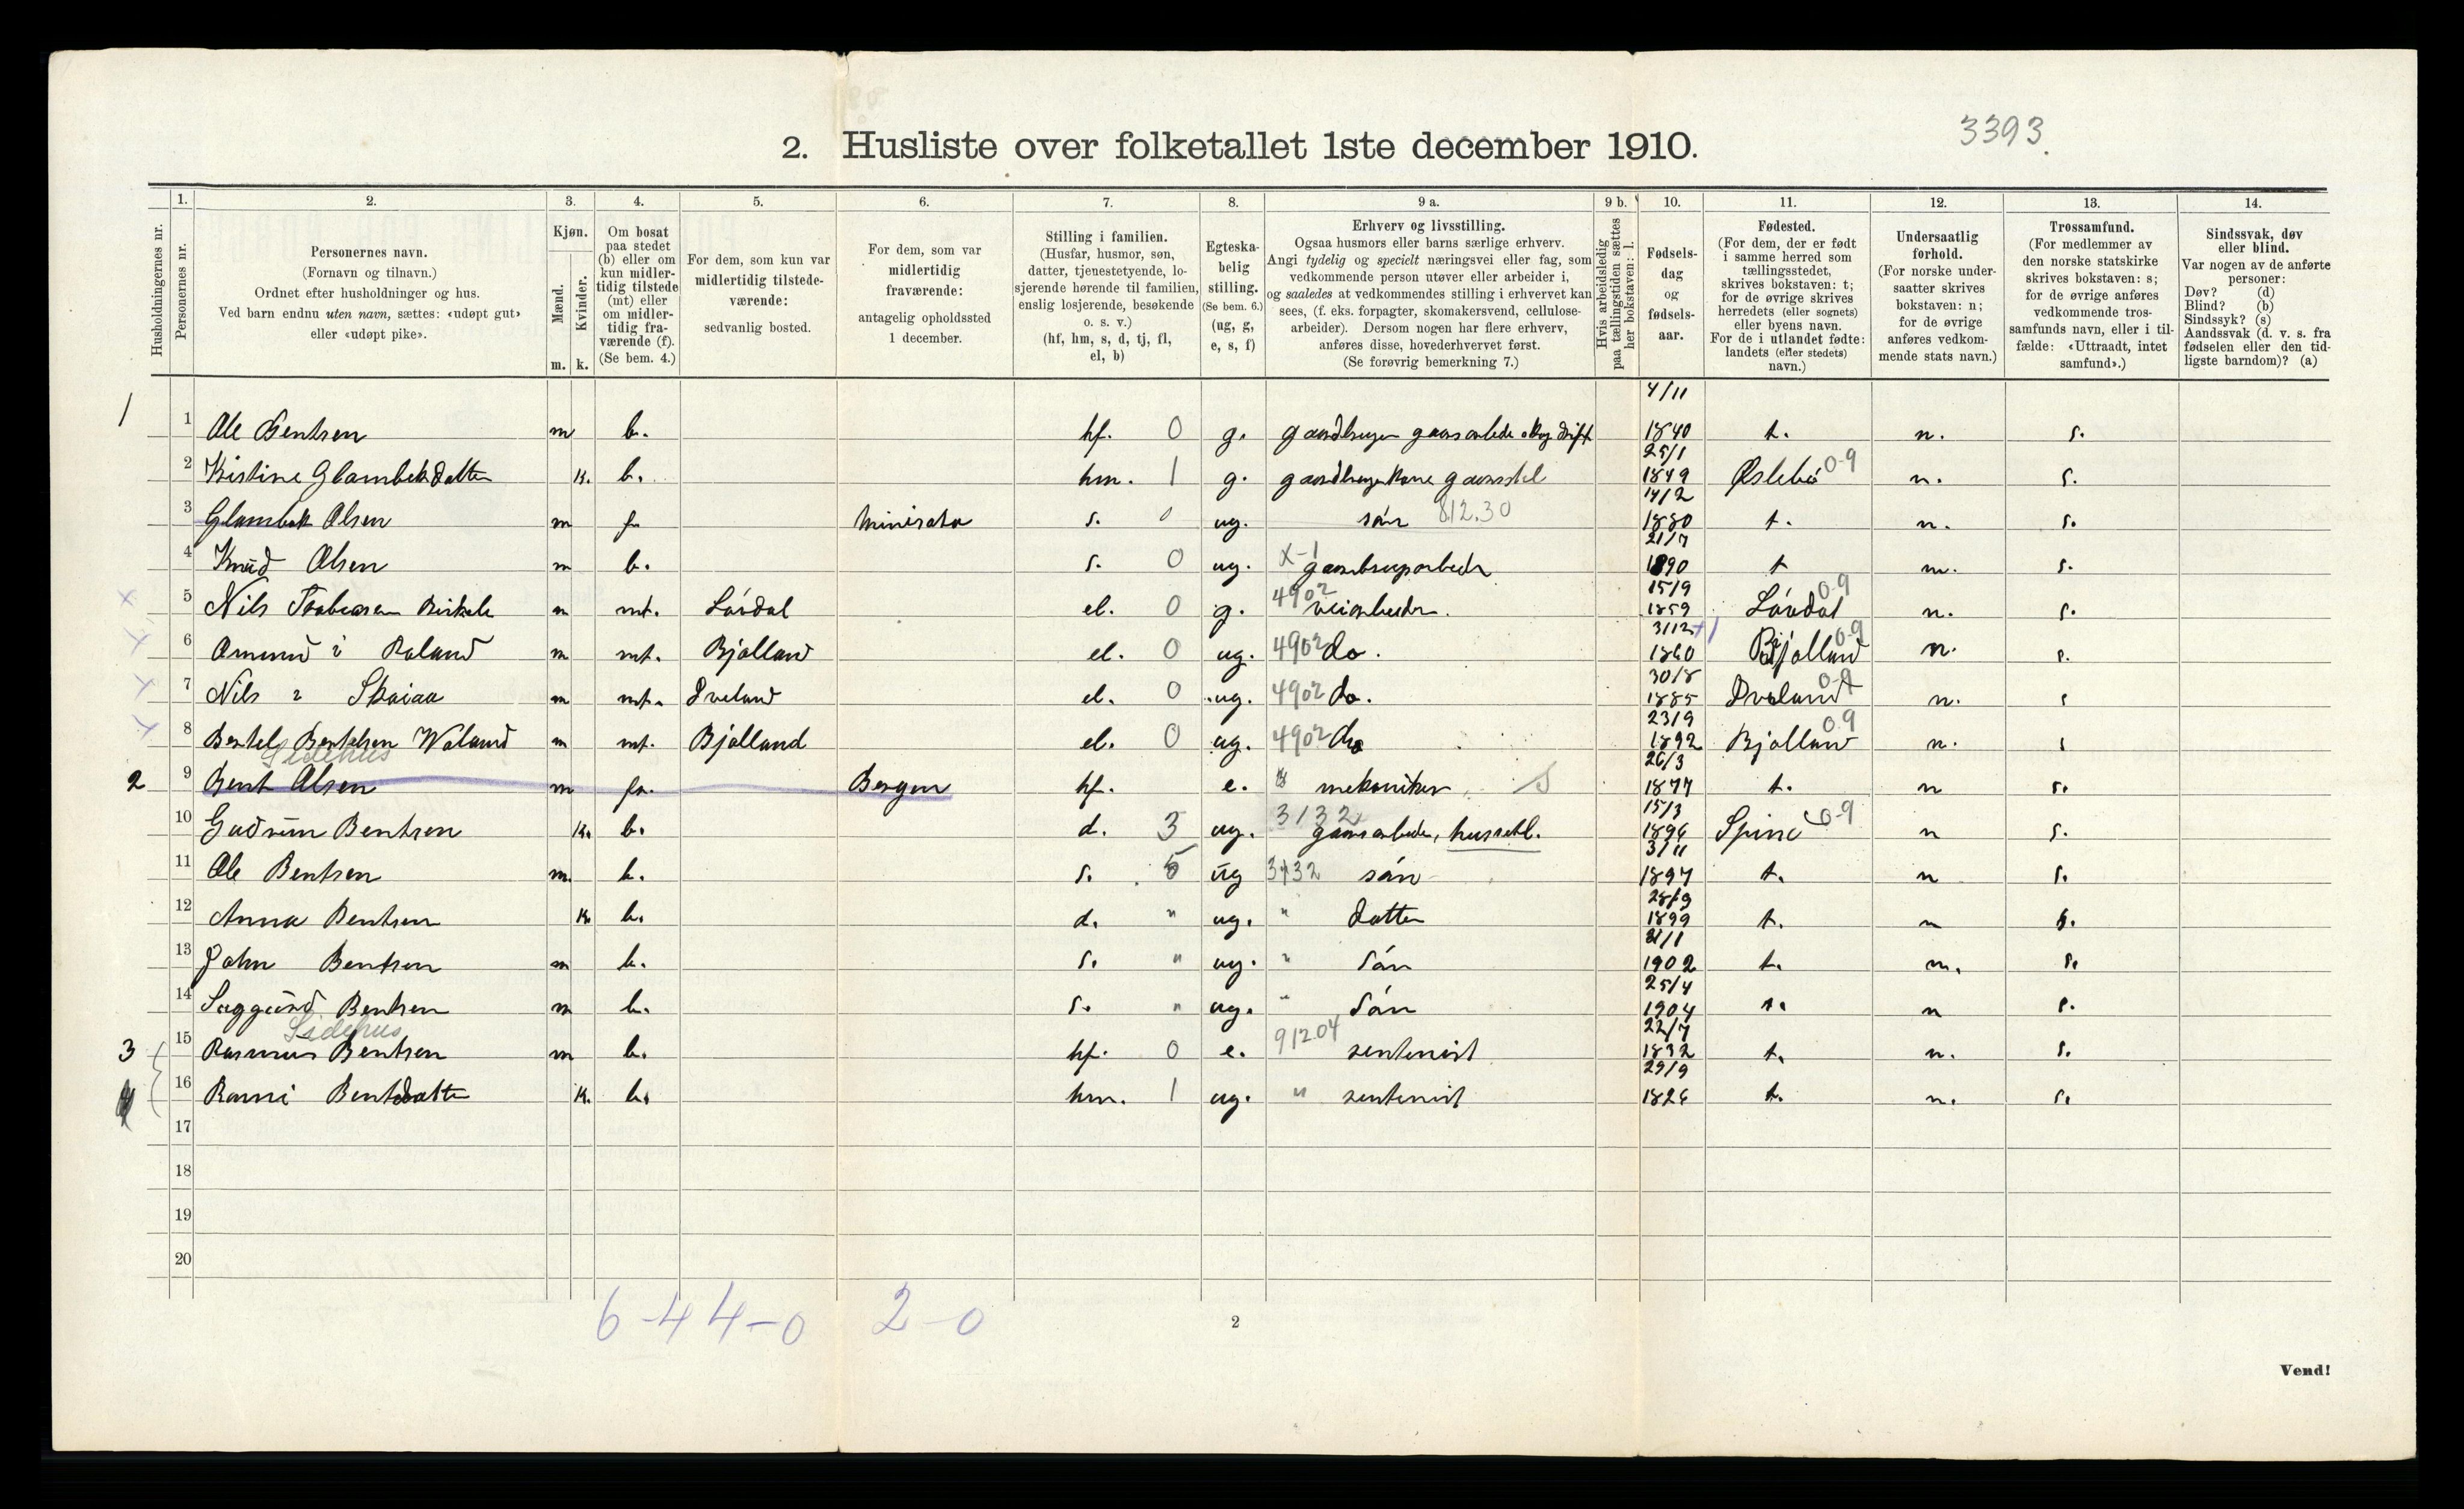 3393.
2. Husliste over folketallet 1ste december 1910.
Husholdningernes nr.
1. Personernes nr.
2. Personernes navn.
(Fornavn og tilnavn.)
Ordnet efter husholdninger og hus.
Ved barn endnu uten navn, sættes: «udøpt gut»
eller «udøpt pike».
3. Kjøn.
Mænd. Kvinder.
m. k.
4. Om bosat
paa stedet
(b) eller om
kun midler-
tidig tilstede
(mt) eller
om midler-
tidig fra-
værende (f).
(Se bem. 4.)
5. For dem, som kun var
midlertidig tilstede-
værende:
sedvanlig bosted.
6. For dem, som var
midlertidig
fraværende:
antagelig opholdssted
1 december.
7. Stilling i familien.
(Husfar, husmor, søn,
datter, tjenestetyende, lo-
sjerende hørende til familien,
enslig losjerende, besøkende
o. s. v.)
(hf, hm, s, d, tj, fl,
el, b)
8. Egteska-
belig
stilling.
(Se bem. 6.)
(ug, g,
e, s, f)
9 a. Erhverv og livsstilling.
Ogsaa husmors eller barns særlige erhverv.
Angi tydelig og specielt næringsvei eller fag, som
vedkommende person utøver eller arbeider i,
og saaledes at vedkommendes stilling i erhvervet kan
sees, (f. eks. forpagter, skomakersvend, cellulose-
arbeider). Dersom nogen har flere erhverv,
anføres disse, hovederhvervet først.
(Se forøvrig bemerkning 7.)
9 b. Hvis arbeidsledig
paa tællingstiden sættes
her bokstaven: l.
10. Fødsels-
dag
og
fødsels-
aar.
11. Fødested.
(For dem, der er født
i samme herred som
tællingsstedet,
skrives bokstaven: t;
for de øvrige skrives
herredets (eller sognets)
eller byens navn.
For de i utlandet fødte:
landets (eller stedets)
navn.)
12. Undersaatlig
forhold.
(For norske under-
saatter skrives
bokstaven: n;
for de øvrige
anføres vedkom-
mende stats navn.)
13. Trossamfund.
(For medlemmer av
den norske statskirke
skrives bokstaven: s;
for de øvrige anføres
vedkommende tros-
samfunds navn, eller i til-
fælde: «Uttraadt, intet
samfund».)
14. Sindssvak, døv
eller blind.
Var nogen av de anførte
personer:
Døv? (d)
Blind? (b)
Sindssyk? (s)
Aandssvak (d. v. s. fra
fødselen eller den tid-
ligste barndom)? (a)
4/11
1 1 Ole Bentsen m b. hf. 0 g. 1840 t. n. s.
25/1
2 Kistine k. b. hm. 1 g. 1849 Øslebø 0-9 n. s.
14/2
3 Glambek Olsen m f s. 0 ug. søn 812.30 1880 t. n. s.
21/7
4 Knud Olsen m b. s. 0 ug. X-1 1890 t n. s.
15/9
5 Nils m mt. Løvdal el. 0 g. 4902 veiarbeider. 1859 Løvdal 0-9 n. s.
3/12
6 m mt. Bjølland el. 0 ug. 4902 do. 1860 Bjølland 0-9 n. s.
30/8
7 Nils m mt. Iveland el. 0 ug. 4902 do. 1885 Iveland 0-9 n. s
23/9
8 Bertel m mt. Bjølland el. 0 ug. 4902 do 1892 Bjølland 0-9 n. s
Sidehus 26/3
2 9 Bent Olsen m Bergen hf. e. mekaniker 1877 t. n s.
15/3
10 Gudrun Bentsen k. b. d. 3 ug. 3132 1896 0-9 n s.
3/11
11 Ole Bentsen m. b. s. 5 ug 3132 søn 1897 t. n s.
28/9
12 Anna Bentsen k b. d. " ug. " datter 1899 t. n s.
13 John Bentsen m b. s. " ug. " søn 1902 t. n. s.
25/4
14 Bentsen m b. s. " ug. " søn 1904 t. n s.
Sidehus 22/7
3 15 Rasmus Bentsen m b. hf. 0 e. 91204 1832 t. n. s.
29/9
16 k. b. hm. 1 ug. " 1826 t. n. s.
17
18
19
20
6-4 4-0 2-0
2
Vend!